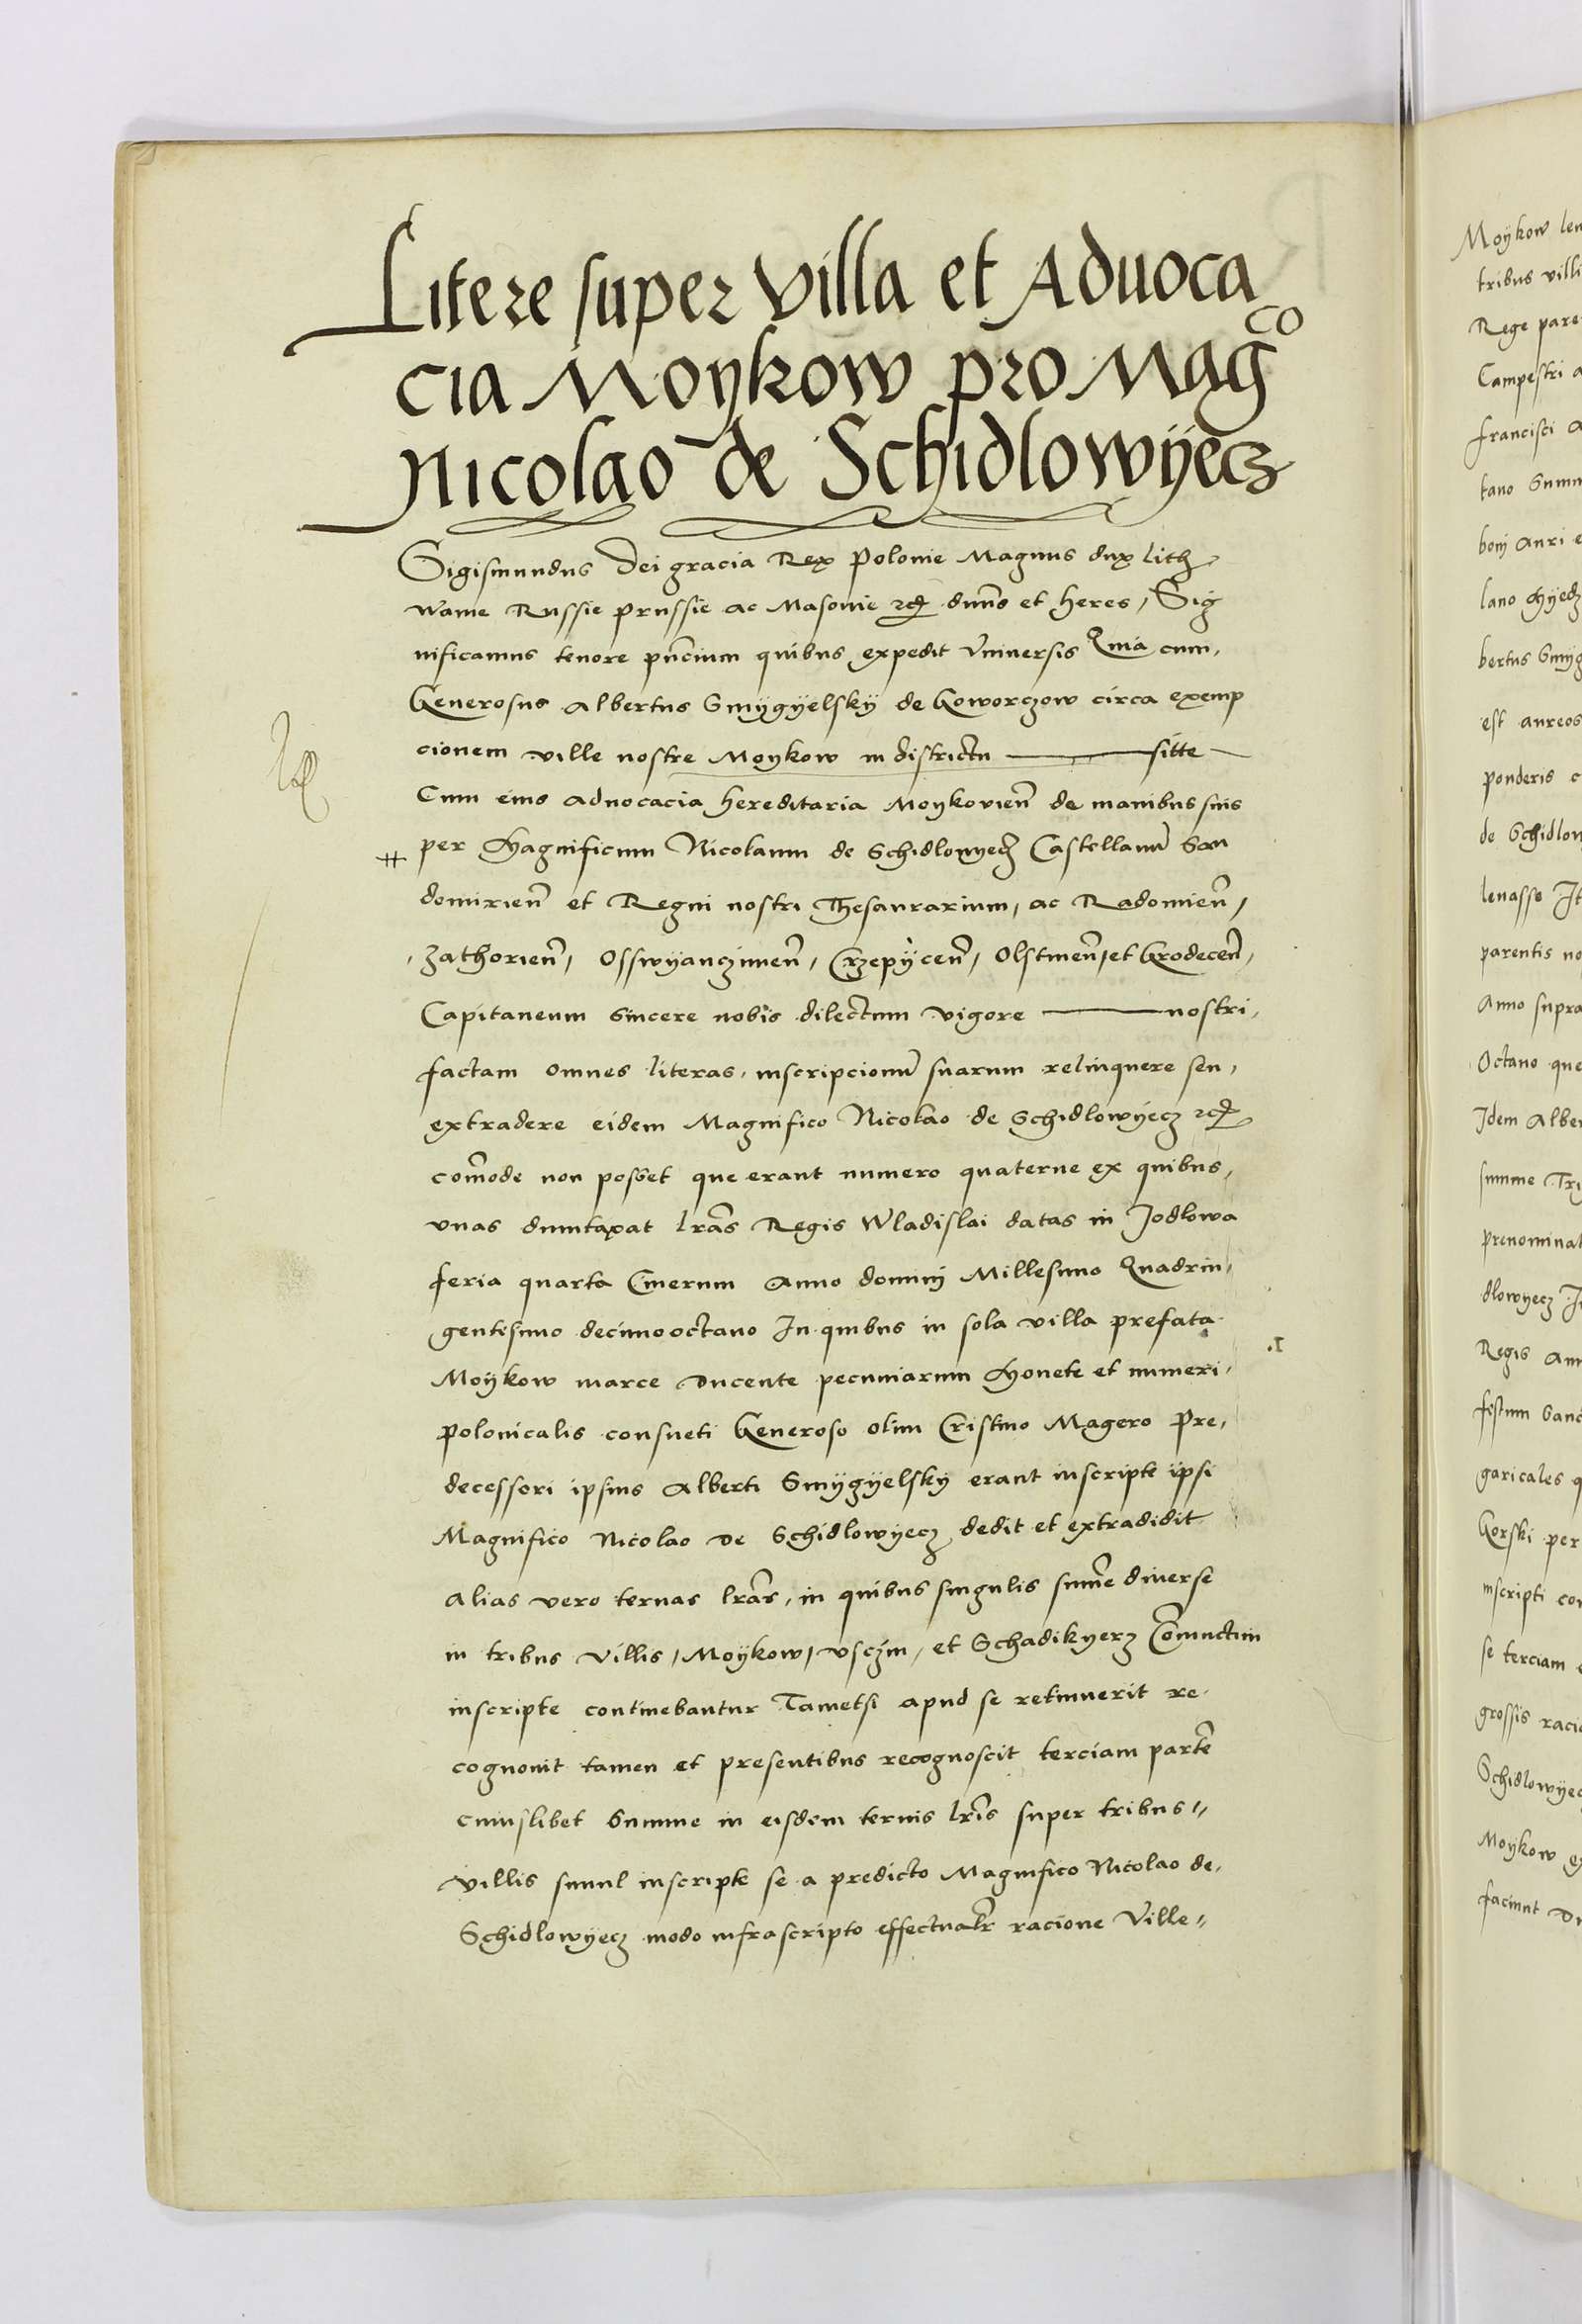 Litere super villa et Aduoca
cia Moykow pro Mag^co
Nicolao de Schidlowyecz
Sigismundus Dei gracia Rex Polonie Magnus dux Lith
wanie Russie prussie ac Masovie etc dnns et heres, Sig
nificamus tenore pñcium quibus expedit Vniuersis Quia cum,
Generosus Albertus Smygyelsky de Goworczow circa exemp
cionem ville nostre Moykow in districtu ——— sitte
Cum eius aduocacia hereditaria Moykovieñ de manibus suis
per Magnificum Nicolaum de Schidlowyecz Castellanũ San
domirieñ et Regni nostri Thesaurarium, ac Radomieñ,
Zathorieñ, Osswyanczimeñ, Crzepyceñ, Olstineñ, et Grodeceñ,
Capitaneum Sincere nobis dilectum vigore ——— nostri,
factam omnes literas, inscripcionũ suarum relinquere seu,
extradere eidem Magnifico Nicolao de Schidlowyecz etc
com̃ode non posset que erant numero quaterne ex quibus,
vnas dumtaxat lrãs Regis Wladislai datas in Jodlowa
feria quarta Cinerum Anno domini Millesimo Quadrin,
gentesimo decimooctauo In quibus in sola villa prefata
Moykow marce Ducente pecuniarum Monete et numeri,
polonicalis consueti Generoso olim Cristino Magero Pre,
decessori ipsius Alberti Smygyelsky erant inscripte ipsi
Magnifico Nicolao de Schidlowyecz dedit et extradidit
Alias vero ternas lrãs, in quibus singulis sum̃e diuerse
in tribus villis, Moykow, Vsczin, et Schadikyerz Coniunctim
inscripte continebantur Tametsi apud se retinuerit re
cognouit tamen et presentibus recognoscit terciam partẽ
cuiuslibet Summe in eisdem ternis lrĩs super tribus
villis simul inscripte se a predicto Magnifico Nicolao de,
Schidlowyecz modo infrascripto effectualr̃ racione Ville
.I.
Moykow
tribus
Rege
Campestri
francisci
tano
boni Auri
lano
bertus
est aureos
ponderis
de
lenasse
parentis
Anno
Octauo que
Idem
summe
dlowyecz
Regis
festum
garicales
Gorski per
inscripti
se terciam
grossis
Moykow
faciunt